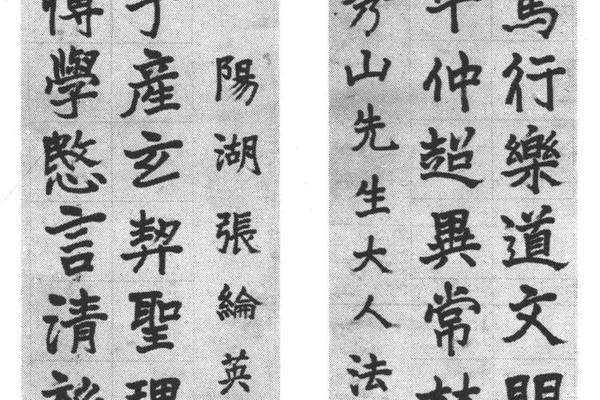 行樂道文
仲超異常
秀山先生大人法
陽湖張綸英
產玄契聖理
學慜言清